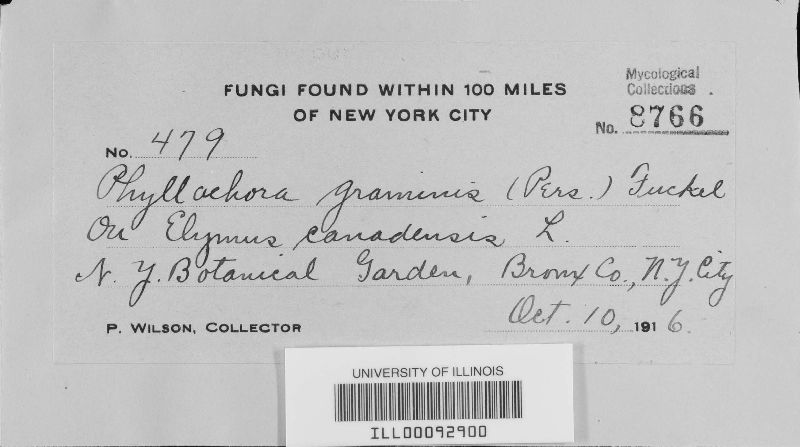 FUNGI FOUND WITHIN 100 MILES
OF NEW YORK CITY
Mycological
Collections.
No. 8766
No. 479
Phyllachora graminis (Pers.) Fuckel
On Elymus canadensis L.
N. Y. Botanical Garden, Bronx Co., N.Y. City
Oct. 10, 1916.
P. WILSON, COLLECTOR
UNIVERSITY OF ILLINOIS
ILL00092900